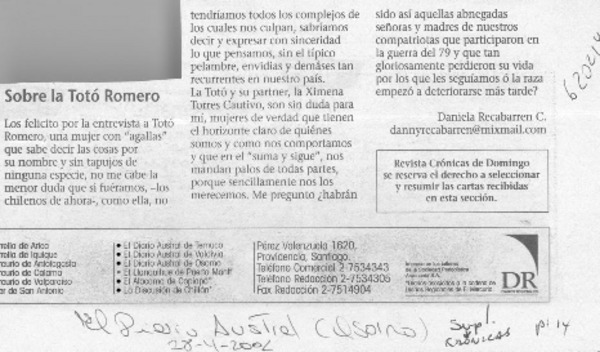 Sobre la Totó Romero
Los felicito por la entrevista a Totó
Romero, una mujer con "agallas"
que sabe decir las cosas por
su nombre y sin tapujos de
ninguna especie, no me cabe la
menor duda que si fuéramos, -los
chilenos de ahora-, como ella, no
tendríamos todos los complejos de
los cuales nos culpan, sabríamos
decir y expresar con sinceridad
lo que pensamos, sin el típico
pelambre, envidias y demáses tan
recurrentes en nuestro país.
La Totó y su partner, la Ximena
Torres Cautivo, son sin duda para
mí, mujeres de verdad que tienen
el horizonte claro de quiénes
somos y como nos comportamos
y que en el "suma y sigue", nos
mandan palos de todas partes,
porque sencillamente nos los
merecemos. Me pregunto ¿habrán
sido así aquellas abnegadas
señoras y madres de nuestros
compatriotas que participaron en
la guerra del 79 y que tan
gloriosamente perdieron su vida
por los que les seguíamos ó la raza
empezó a deteriorarse más tarde?
Daniela Recabarren C.
dannyrecabarren@mixmail.com
Revista Crónicas de Domingo
se reserva el derecho a seleccionar
y resumir las cartas recibidas
en esta sección.
trella de Arica
trella de Iquique
rcurio de Antofagasta
rcurio de Calama
rcurio de Valparaíso
er de San Antonio
• El Diario Austral de Temuco
• El Diario Austral de Valdivia
• El Diario Austral de Osorno
• El Llanquihue de Puerto Montt
• El Atacama de Copiapó*
• La Discusión de Chillán*
Pérez Valenzuela 1620,
Providencia, Santiago.
Teléfono Comercial 2-7534343
Teléfono Redacción 2-7534305
Fax Redacción 2-7514904
DR
El Diario Austral (Osorno)
28-4-2002
Supl.
Crónicas
p. 14